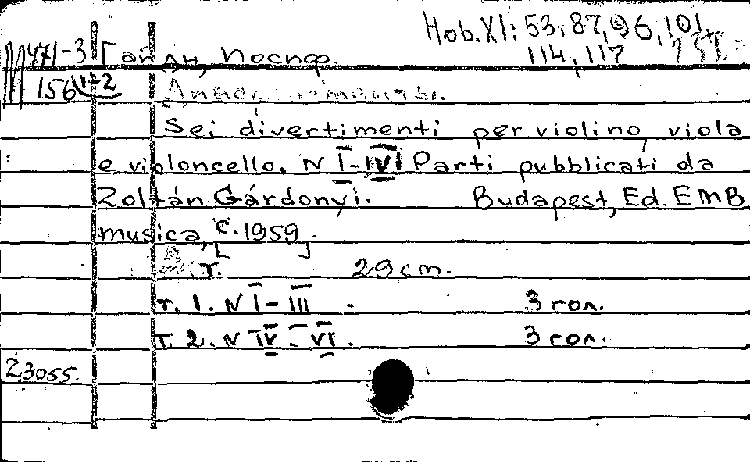 Hob. XI: 53, 87, 96, 101,
114, 117
M 471-3
156 1-2
Гайдн, Йосиф.
Sei divertimenti per violino, viola
e violoncello. N I-VI Parti pubblicati da
Zoltán Gárdonyi. Budapest, Ed. EMB
musica, [c. 1959].
т. 29 cm.
т. 1. N I - III 3 гол.
т. 2. N IV - VI. 3 гол.
23055.